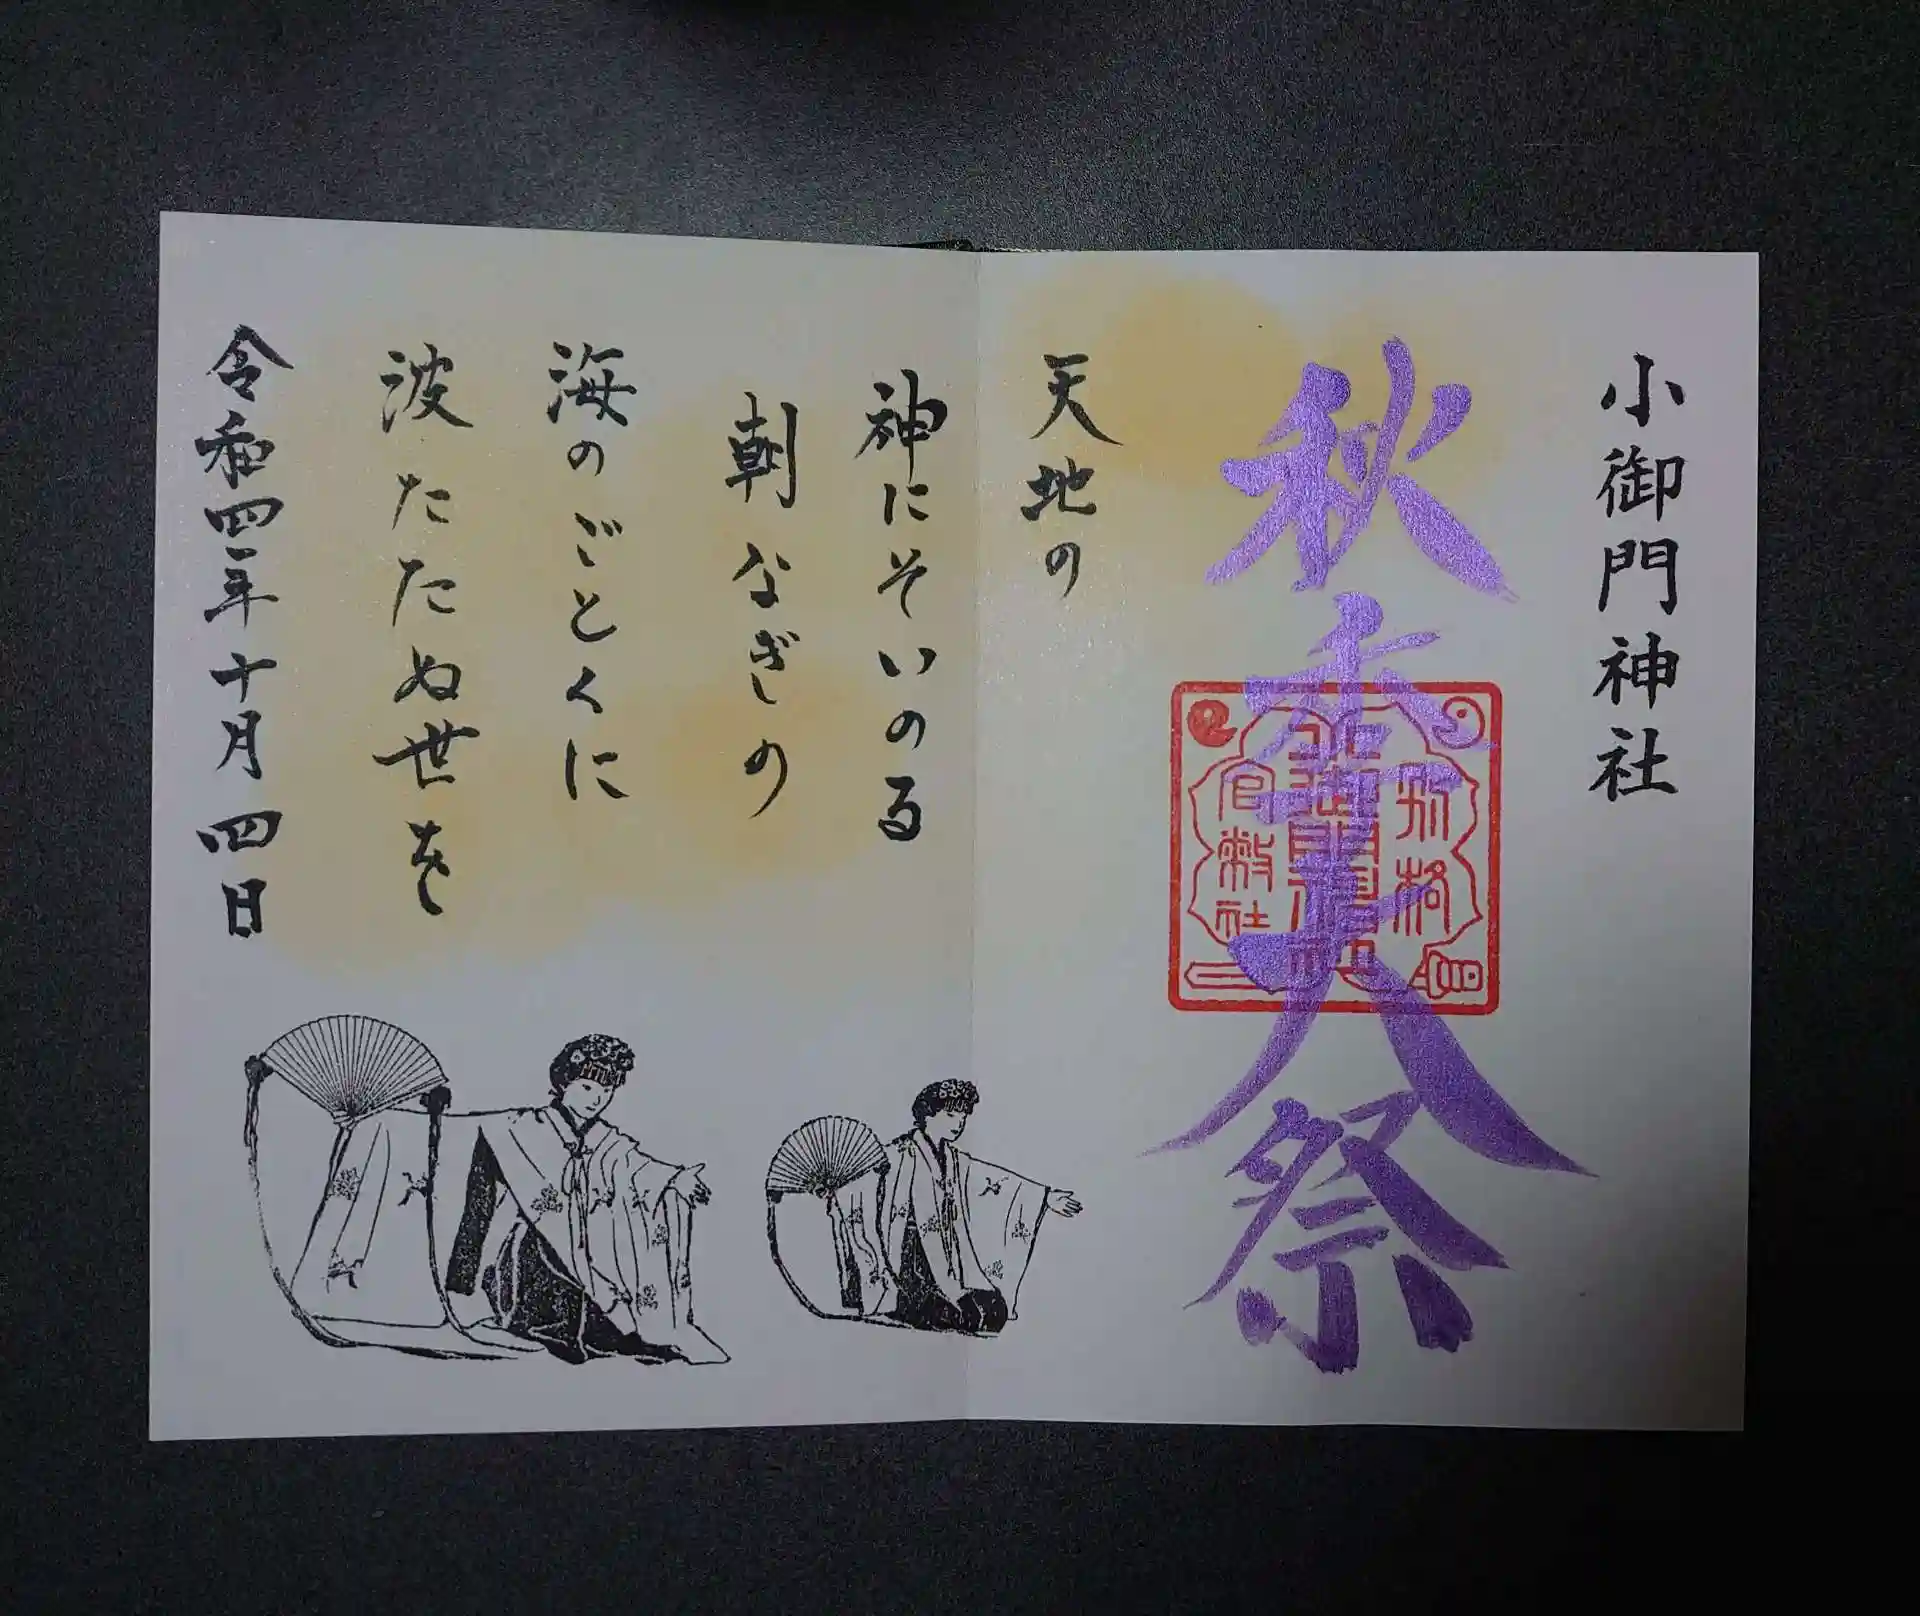 小御門神社
秋季大祭
別格
官幣社
天地の
神にそいのる
朝なぎの
海のごとくに
波たたぬ世を
令和四年十月四日